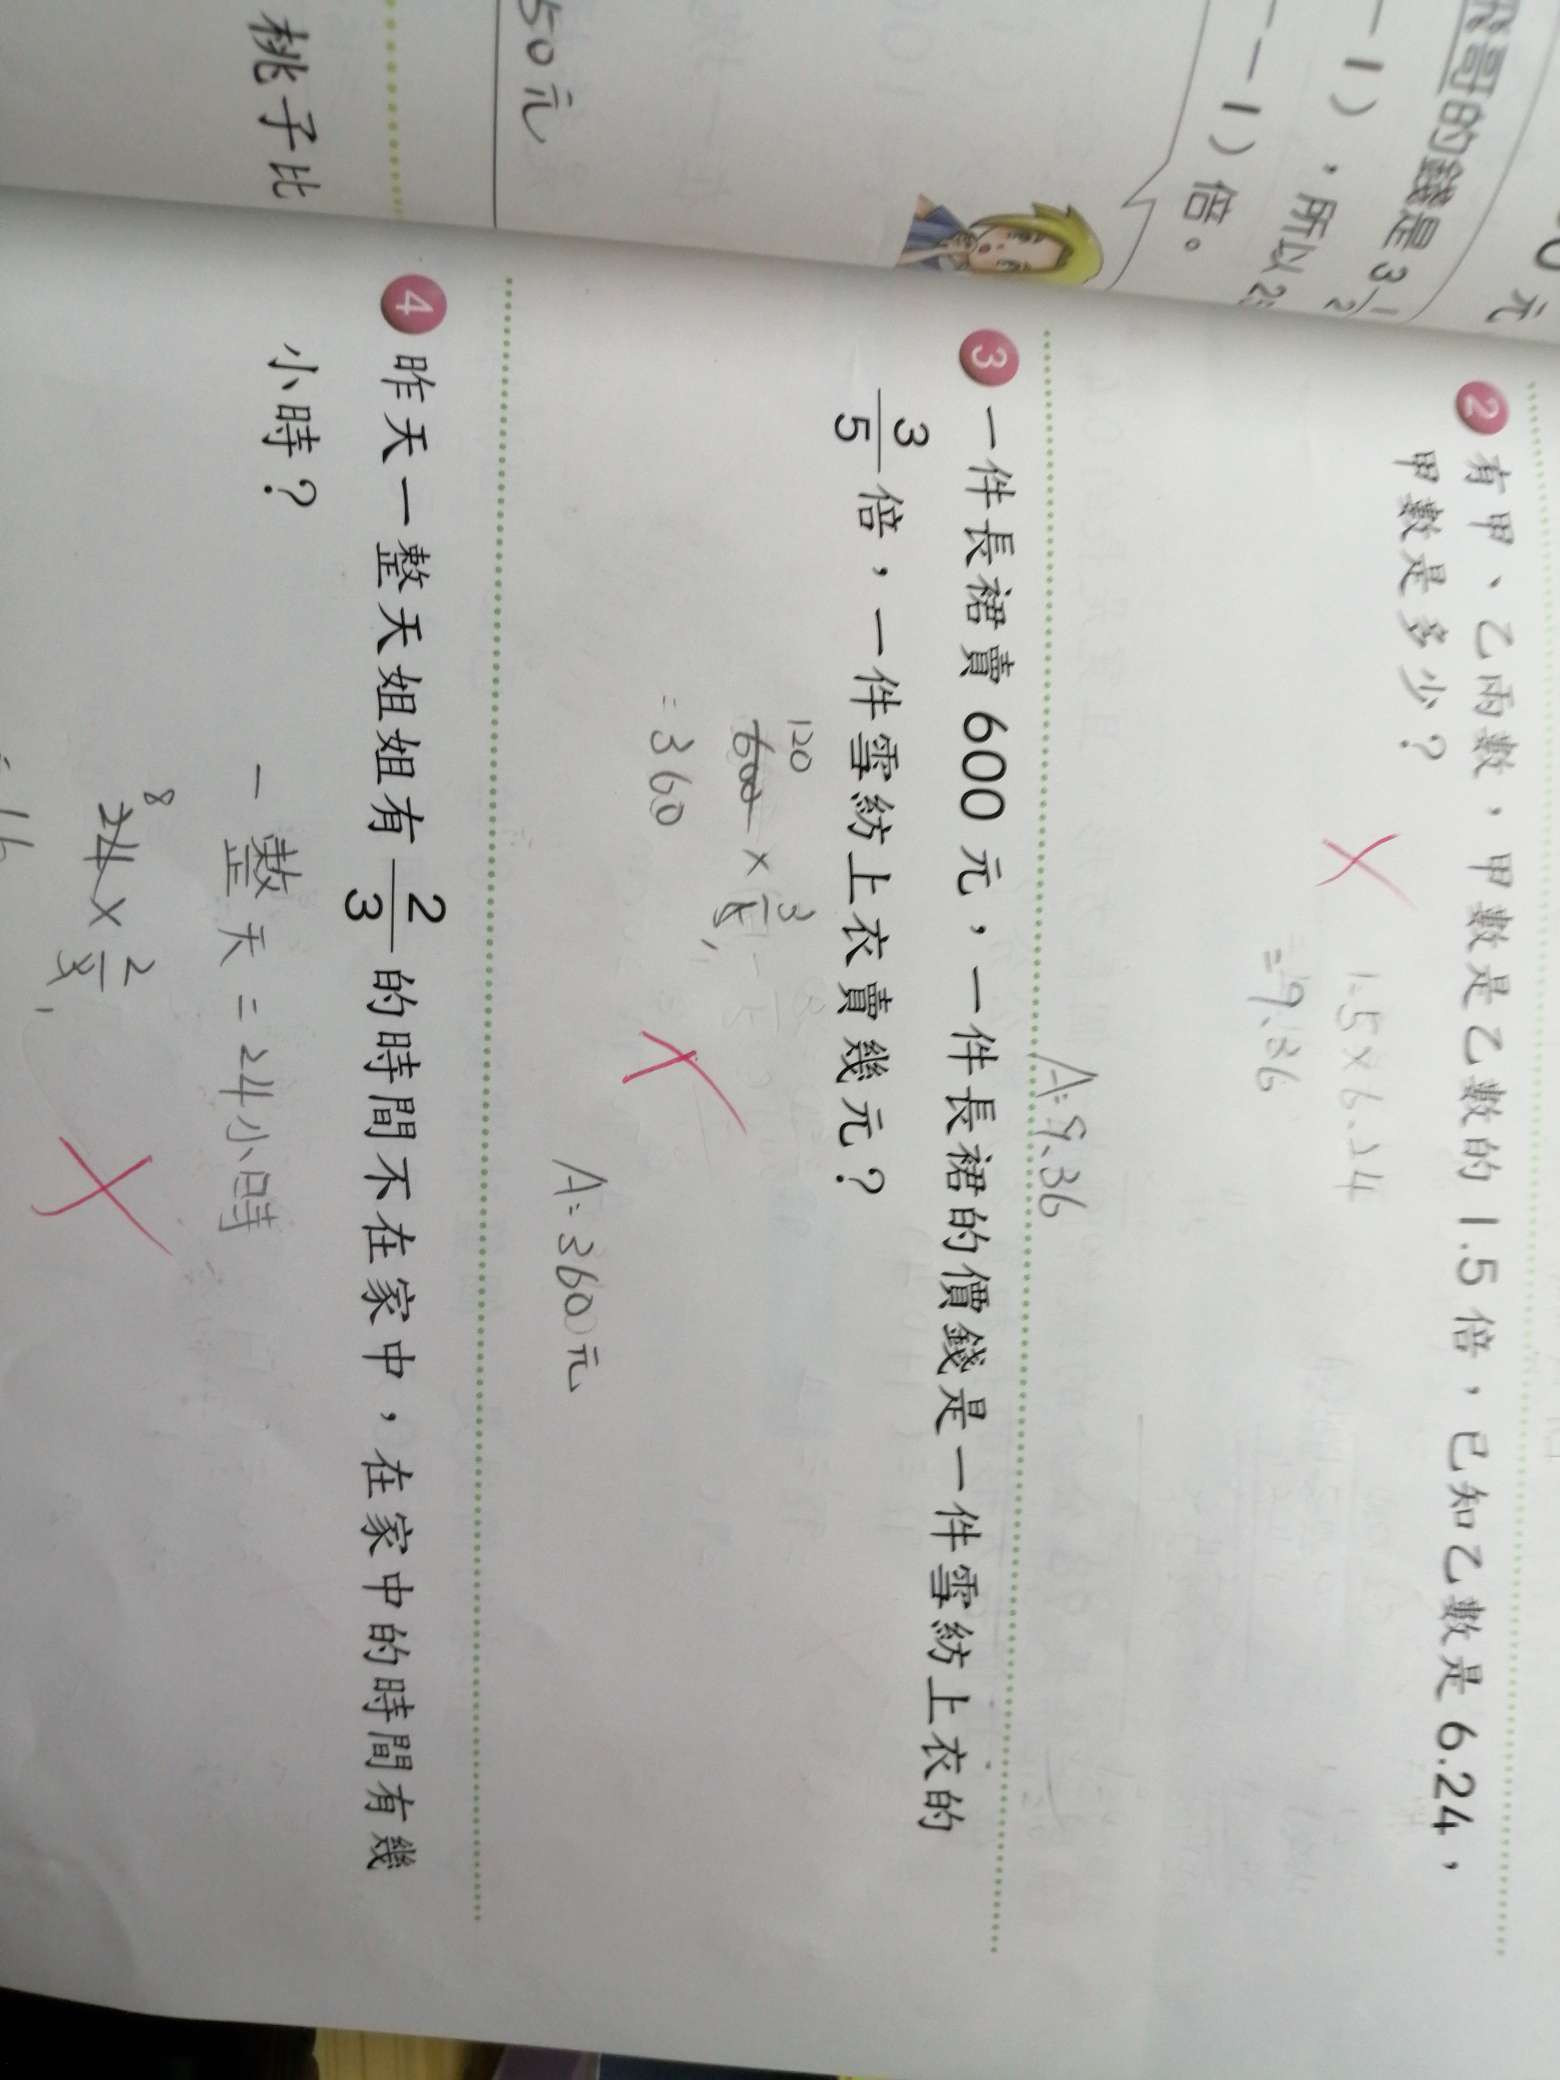 哥的錢是3 1/2
－1），所以2
－1）倍。
元
50元
桃子比
2 有甲、乙兩數，甲數是乙數的1.5倍，已知乙數是6.24，
甲數是多少？
1.5×6.24
=9.36
A:9.36
3 一件長裙賣600元，一件長裙的價錢是一件雪紡上衣的
3/5倍，一件雪紡上衣賣幾元？
120
600×3/5 1
=360
A:360元
4 昨天一整天姐姐有2/3的時間不在家中，在家中的時間有幾
小時？
一整天=24小時
8
24×2/3 1
16